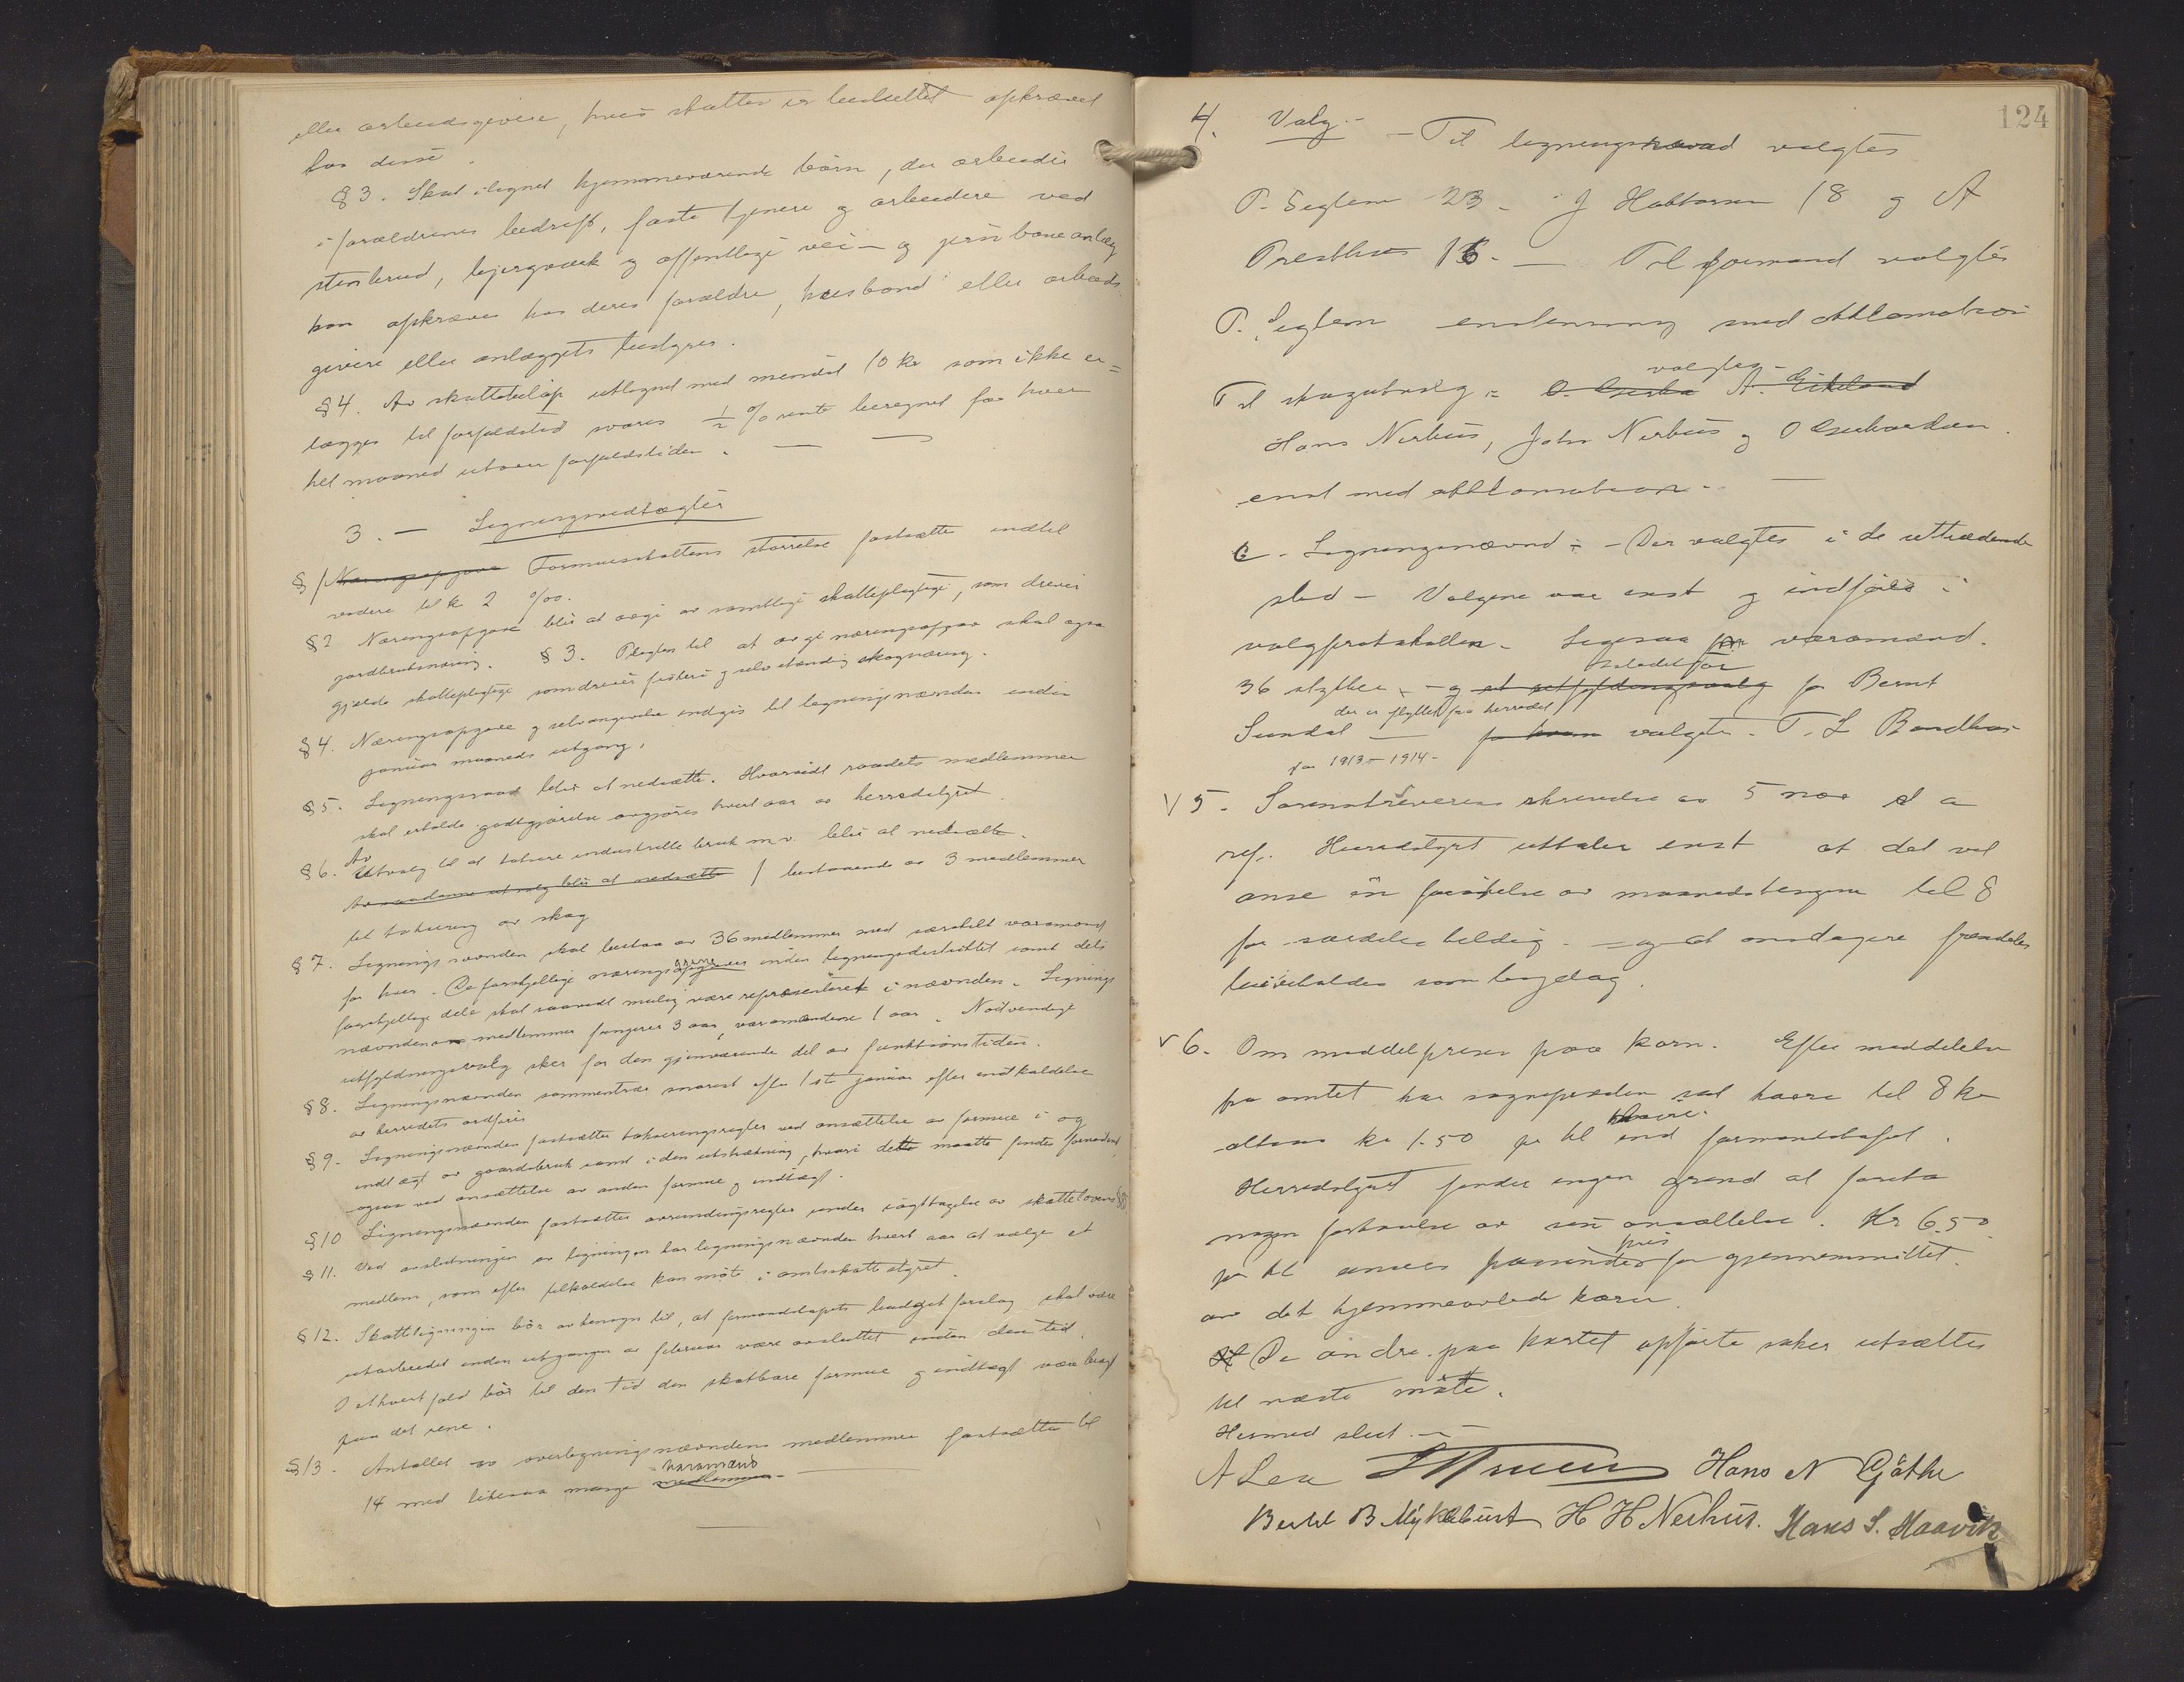 eller arbeidsgivere, hvis skatter er besluttet opkrævet
hos disse.
§ 3. Skat ilignet hjemmeværende børn, der arbeider
i forældrenes bedrift, faste tjenere og arbeidere ved
stenbrud, bjergverk og offentlige vei- og jernbaneanlæg
kan opkræves hos deres forældre, husbond eller arbeids
givere eller anlæggets bestyrer.
§ 4. Av skattebeløp utlignet med mindst 10 kr som ikke er=
lægges til forfaldstid svares 1/2 % rente beregnet for hver
hel maaned utover forfaldstiden. — —
3. — Ligningsvedtægter
§ 1 Næringsopgave Formueskattens størrelse fastsættes indtil
videre til kr 2 ‰.
§ 2 Næringsopgave blir at avgi av samtlige skattepligtige, som driver
jordbruksnæring. § 3. Pligten til at avgi næringsopgave skal ogsaa
gjælde skattepligtige som driver fiskeri og selvstændig skognæring.
§ 4. Næringsopgave og selvangivelse indgis til ligningsnævnden inden
januar maaneds utgang.
§ 5. Ligningsraad blir at nedsætte. Hvorvidt raadets medlemmer
skal erholde godtgjørelse avgjøres hvert aar av herredstyret.
Av
§ 6. Utvalg til at taksere industrielle bruk m.v. blir at nedsætte.
Av saadanne utvalg blir at nedsætte 1 bestaaende av 3 medlemmer
til taksering av skog
§ 7. Ligningsnævnden skal bestaa av 36 medlemmer med særskilt varamand
grene
for hver. De forskjellige næringsopgaver inden ligningsdistriktet samt dets
forskjellige dele skal saavidt mulig være repræsenteret i nævnden. Lignings
nævndens medlemmer fungerer 3 aar, varamændene 1 aar. Nødvendige
utfyldningsvalg sker for den gjenværende del av funktionstiden.
§ 8. Ligningsnævnden sammentræder snarest efter 1ste januar efter indkaldelse
av herredets ordfører
§ 9. Ligningsnævnden fastsætter takseringsregler ved ansættelse av formue i og
indtægt av gaardsbruk samt i den utstrækning, hvori dette maatte findes fornødent,
ogsaa ved ansættelse av anden formue og indtægt.
§ 10 Ligningsnævnden fastsætter avrundingsregler under iagttagelse av skattelovens §
§ 11. Ved avslutningen av ligningen har ligningsnævnden hvert aar at vælge et
medlem, som efter tilkaldelse kan møte i amtsskattestyret.
§ 12. Skatteligningen bør av hensyn til, at formandskapets budgetforslag skal være
utarbeidet inden utgangen av februar være avsluttet inden den tid.
I ethvert fald bør til den tid den skatbare formue og indtægt være bragt
paa det rene.
§ 13. Antallet av overligningsnævndens medlemmer fastsættes til
varamænd
14 med likesaa mange medlemmer —
124
4. Valg.- — Til ligningsraad valgtes
P. Seglem 23 - J Habtorsen 18 og A
Presthus 16. — Til formand valgtes
P. Seglem enstemmig med akklamation
valgtes
Til skogutvalg = A. Eikeland
Hans Nerhus, John Nerhus og
enst med akklamation. —
C. Ligningsnævnd ÷ - Der valgtes i de uttrædende
sted - Valgene var enst og indføres i
valgprotokollen. Ligesaa for varamænd.
istedetfor
36 stykker - og et utfyldningsvalg for Bernt
der er flyttet fra herredet
Sundal — for hvem valgtes T. L Bondhus
for 1913-1914-
V 5. skrivelse av 5 nov d a
ref. Herredstyret uttaler enst at det vil
anse en forøkelse av maanedstingene til 8
for særdeles heldig. = og at onsdagene fremdeles
beibeholdes som tingdag.
V 6. Om middelprisen paa korn. Efter meddelelse
fra amtet har sognepræsten sat havre til 8 kr
havre.
altsaa kr 1.50 pr hl end formandskapet.
Herredstyret finder ingen grund at foreta
nogen forhøielse av sin ansættelse. Kr 6.50
pris
pr hl ansees passende for gjennemsnittet
av det hjemmeavlede korn.
De andre paa kartet opførte saker utsættes
til næste møte.
Hermed slut. —
A Lea Hans N Gjøthe
Bertel B Mykleburst H H Nerhus. Hans S. Haavik